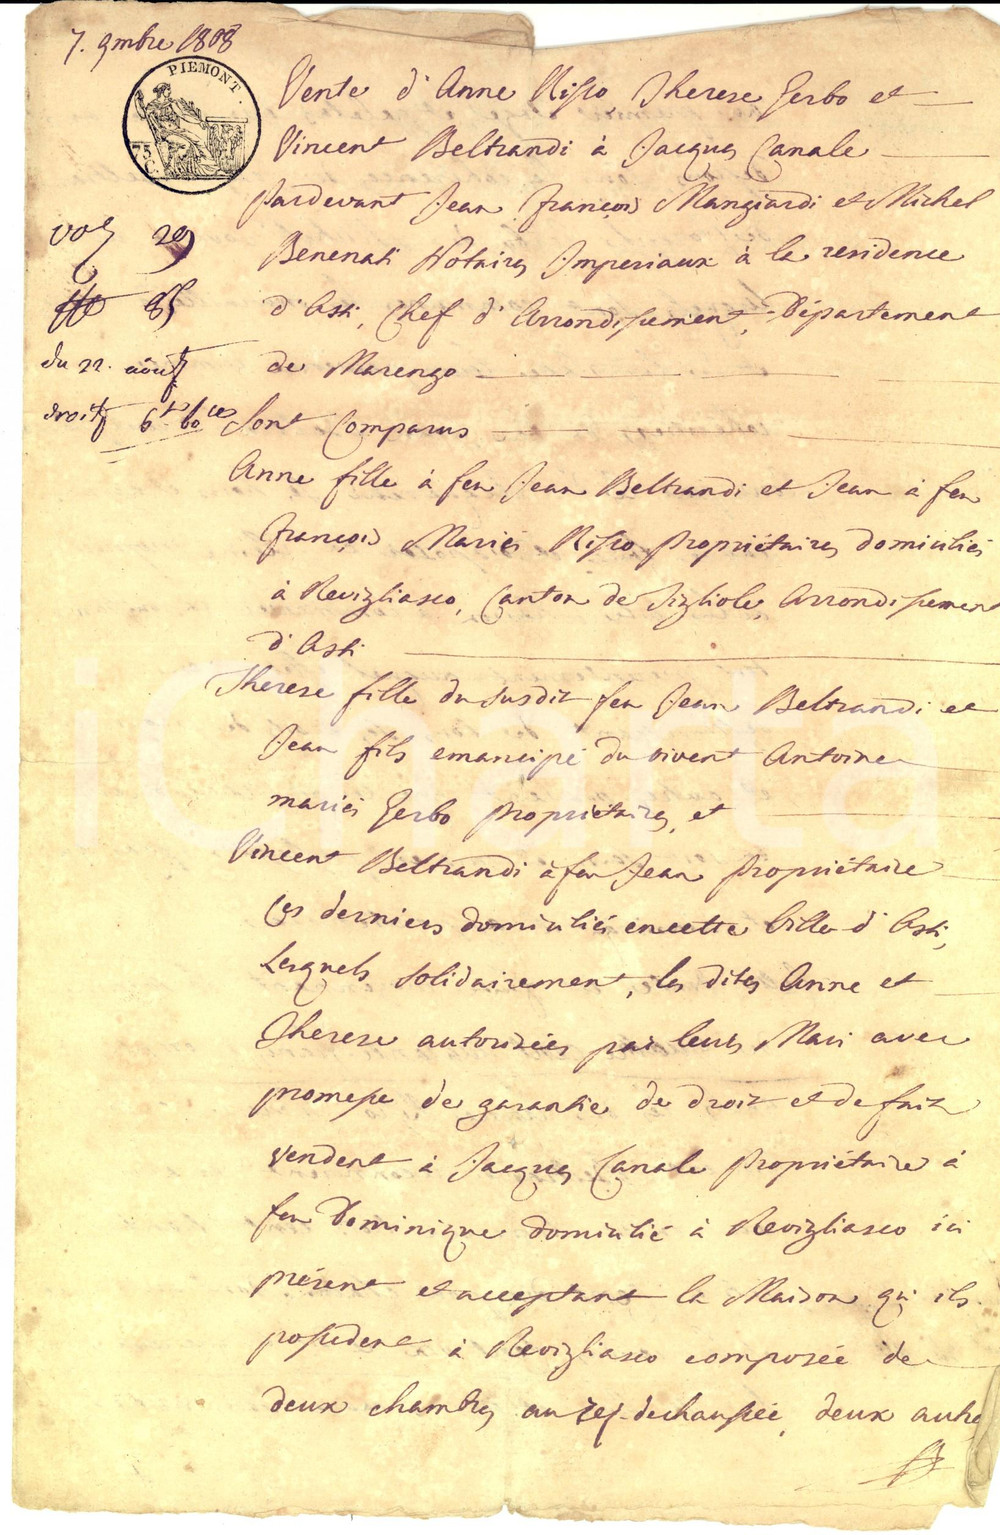 7. 9mbre 1808
PIEMONT.
75
C.
Vente d'Anne Risso, Therese Gerbo et
Vincent Beltrandi à Jacques Canale
Pardevant Jean François Mangiardi et Michel
Benenati Notaires Imperiaux à la residence
d'Asti, Chef d'Arrondissement, Département
de Marengo
Sont Comparus
vol 29
85
du 22. août
droits 6 60
Anne fille à feu Jean Beltrandi et Jean à feu
François Mariés Risso propriétaires domiciliés
à Revigliasco, Canton de Tigliole, Arrondissement
d'Asti
Therese fille du susdit feu Jean Beltrandi et
Jean fils emancipé du vivent Antoine
mariés Gerbo propriétaires, et
Vincent Beltrandi à feu Jean propriétaire
Ces derniers domiciliés en cette Ville d'Asti,
Lesquels solidairement, les dites Anne et
Therese autorisées par leurs Mari avec
promesse de garantie de droit et de fait
vendent à Jacques Canale propriétaire à
feu Dominique domicilié à Revigliasco ici
présent et acceptant la Maison qu'ils
possedent à Revigliasco composée de
deux chambres au rez-dechaussée, deux autre
icharta